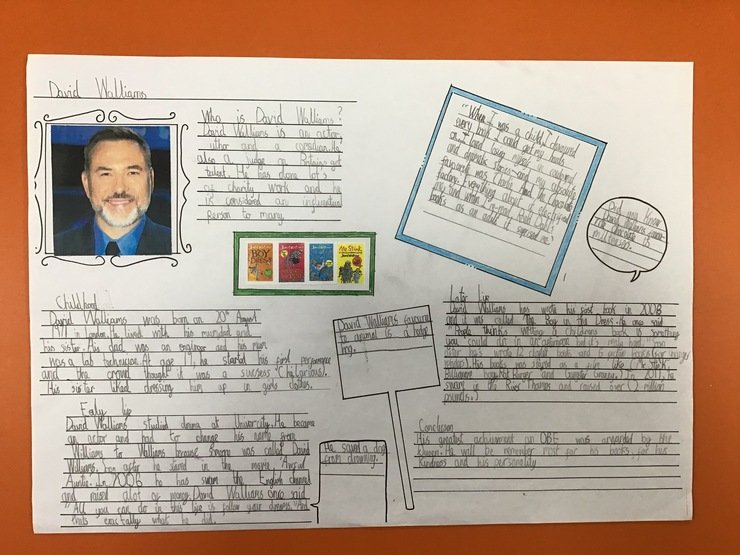 David Walliams
Who is David Walliams?
David Walliams is an actor,
uthor and a comedian. He
also a judge on Britains got
talent. He has done lot's
of charity work and he
is considered an influential
person to many
"When I was a child I devoured
every book I could get my hands
on. I
favourite was Charlie And the Chocolate
factory.
books as an adult it
Did you know
David Walliams
favourite is
BOY
DRESS
Mr Stink
Childhood
David Walliams was born on 20th August
1971 in London. He lived with his mum, dad and
his sister. His dad was an engineer and his mum
was a lab technician. At age 17, he started his first performance
and the crowd thought it was a success (hilarious).
His sister liked dressing him up in girls clothes.
Early life
David Walliams studied drama at University. He became
an actor and had to change his name from
Williams to Walliams because someone was called David
Williams. Soon after he stared in the movie "Awful
Auntie. In 2006 he has swam the English channel
and raised alot of money. David Walliams once said
"All you can do in this life is follow your dreams." And
thats exactally what he did.
He saved a dog
from drowning.
David Walliams favouri
te animal is a hedge
hog.
Later life
David Walliams has wrote his first book in 2008
and it was called The Boy in the Dress. He once said
"People thinks writing a childrens book is something
you could do in an afternoon but it's really hard." Soon
after he's wrote 12 digital books and 6 picture books (for younger
readers). His books was stared as a film like (Mr Stink,
Billionaire boy, Ratburger and Gangster Granny.) In 2011, he
swam in the River Thames and raised over (2 million
pounds.)
Conclusion
His greatest achievment an OBE was awarded by the
Queen. He will be remember most for his books, for his
kindness and his personality